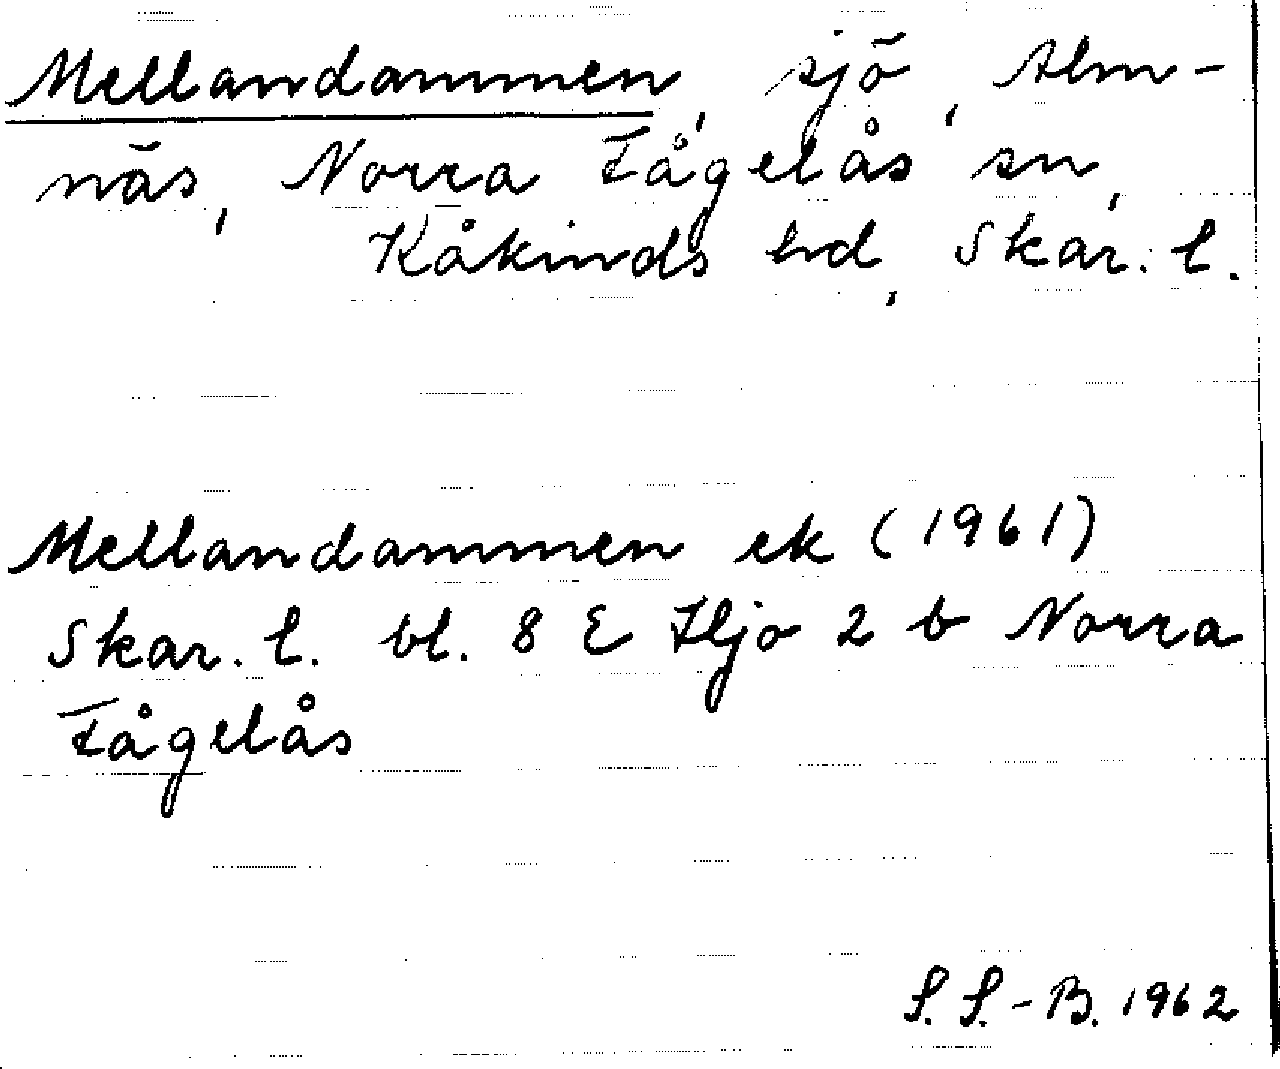 Mellandammen, sjö, Alm-
näs, Norra Fågelås sn,
Kåkinds hd, Skar. l.
Mellandammen ek (1961)
Skar. l. bl. 8 E Hjo 2 b Norra
Fågelås
S. S.-B. 1962